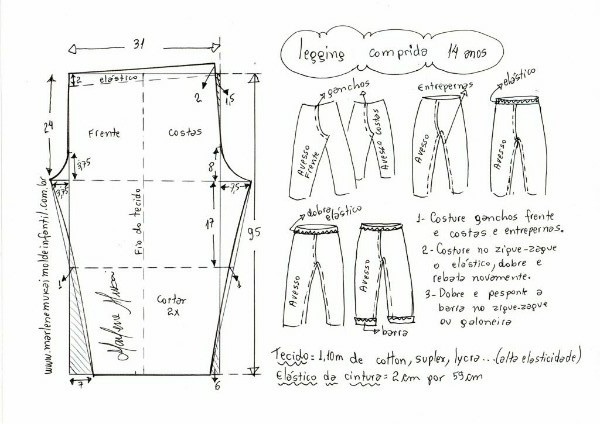 31
legging comprida 14 anos
2
elástico
2
1,5
24
Frente
Costas
3,75
8
3,75
7,5
Fio do tecido
17
95
1
1
Cortar
2x
Marlene Mukai
7
6
www.marlenemukaimoldeinfantil.com.br
ganchos
Entrepernas
elástico
Avesso
Frente
Avesso Costas
Avesso
Avesso
dobra
elástico
Avesso
Avesso
barra
1- Costure ganchos frente
e costas e entrepernas.
2- Costure no zigue-zague
o elástico, dobre e
rebata novamente.
3- Dobre e pesponte a
barra no zigue-zague
ou galoneira
Tecido = 1,10m de cotton, suplex, lycra... (alta elasticidade)
Elástico da cintura = 2cm por 59cm